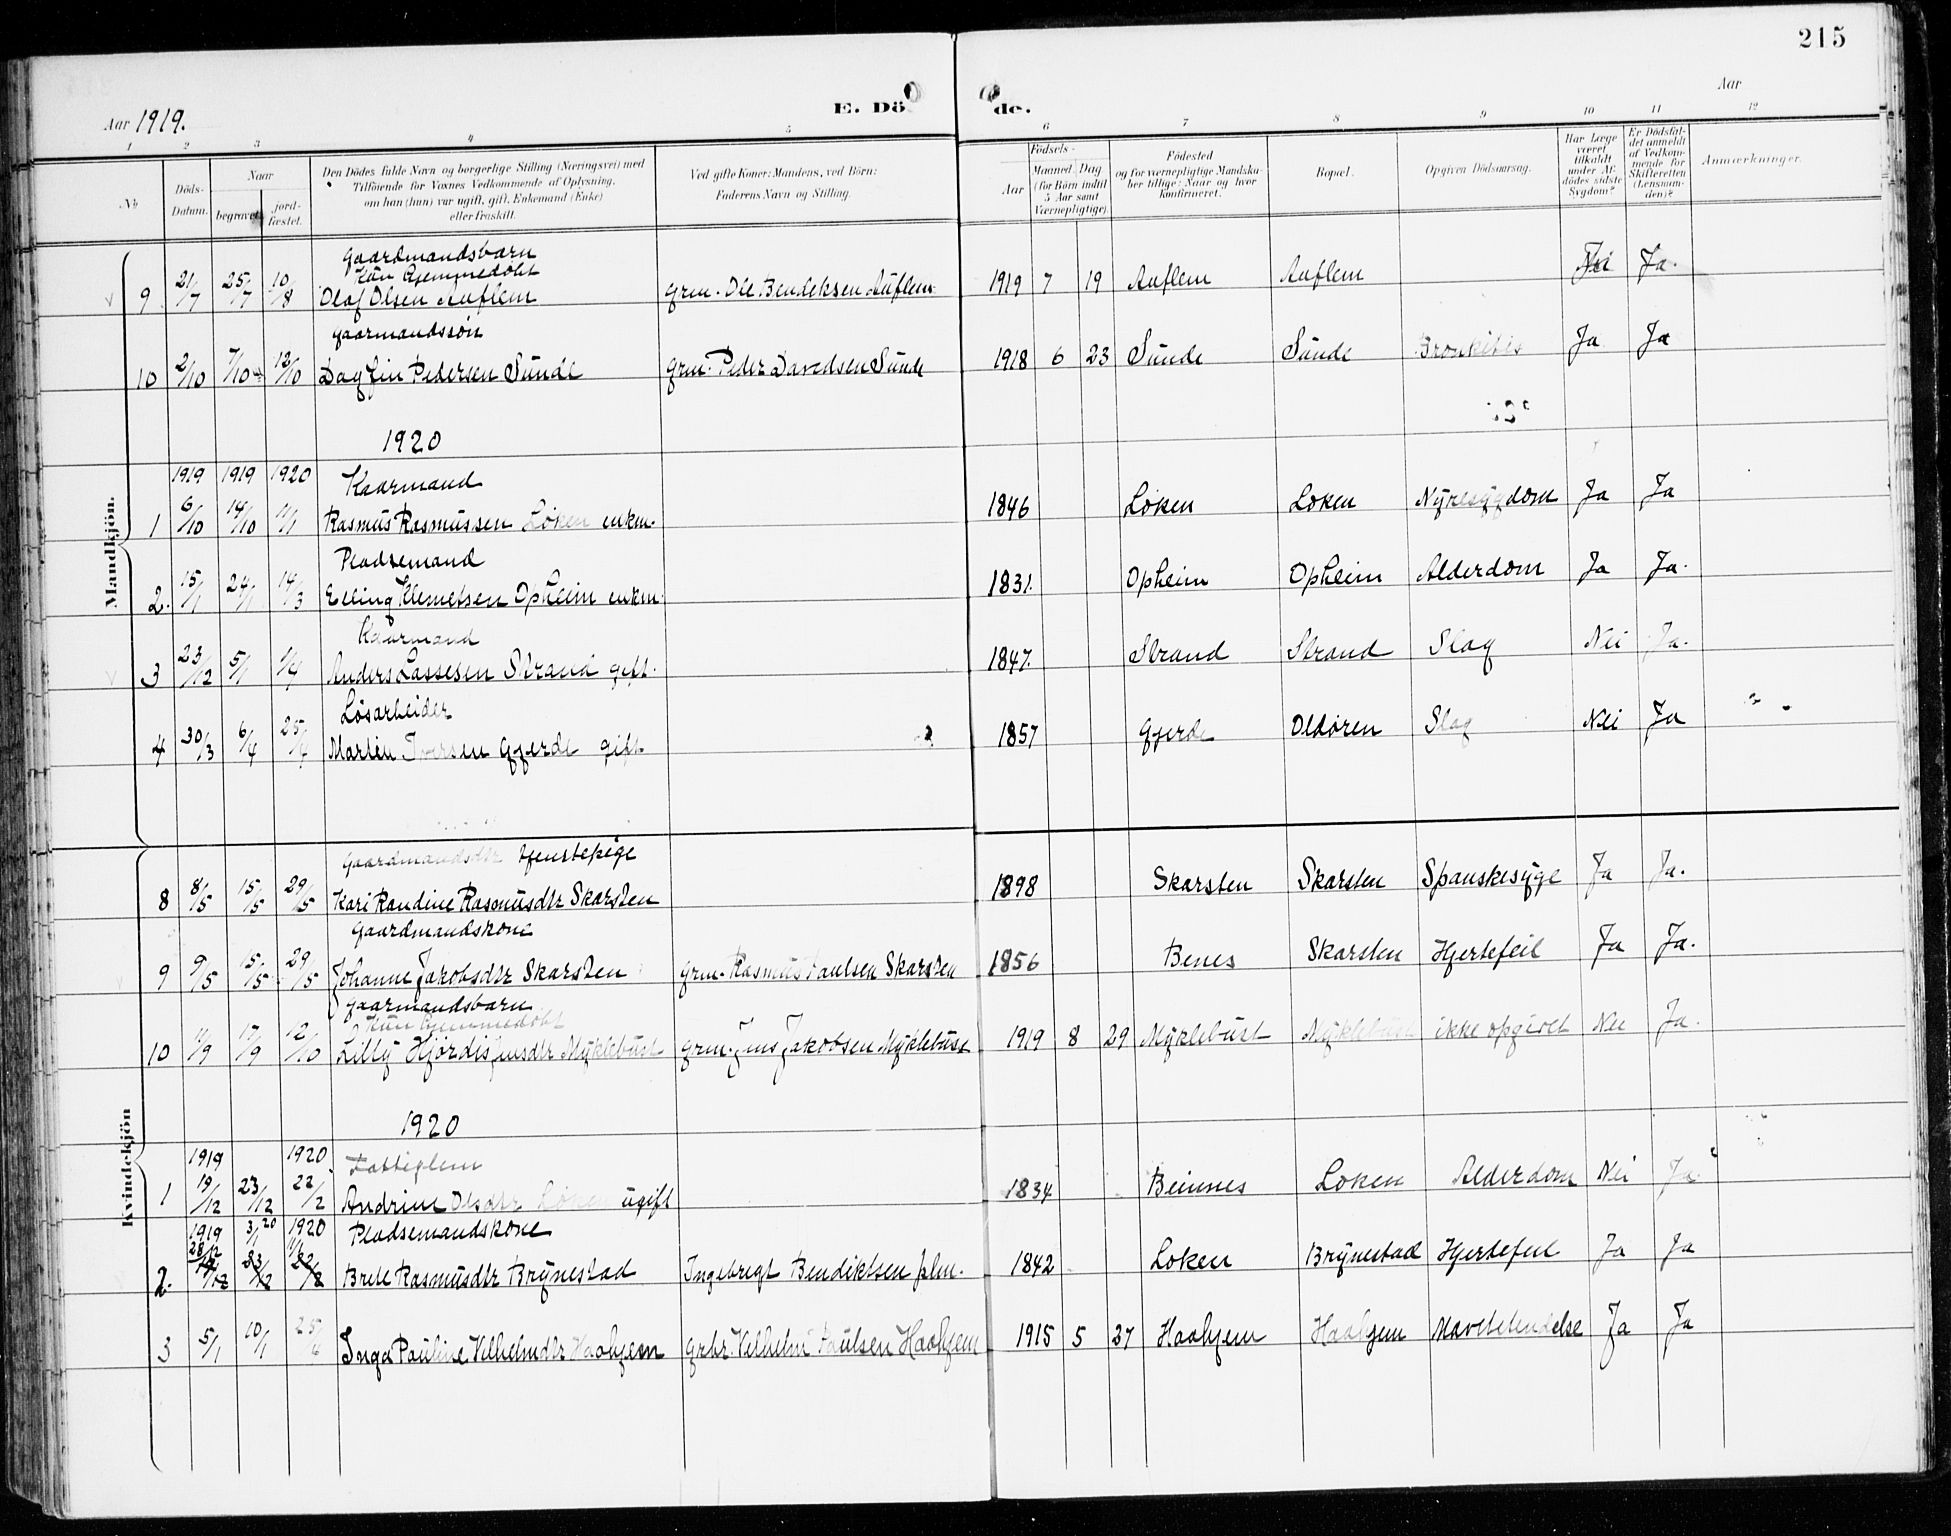 215
Aar 1919. E. Dö de. Aar
1 2 3 4 5 6 7 8 9 10 11 12
No Döds-Datum. Naar begravet. jordfæstet. Den Dödes fulde Navn og borgerlige Stilling (Næringsvei) med Tilföiende for Voxnes Vedkommende af Oplysning, om han (hun) var ugift, gift, Enkemand (Enke) eller fraskilt. Ved gifte Koner: Mandens, ved Börn: Faderens Navn og Stilling. Födsels- Aar Maaned Dag (for Börn indtil 5 Aar samt Værnepligtige) Födested og for værnepligtige Mandskaber tillige: Naar og hvor konfirmeret. Bopæl. Opgiven Dödsaarsag. Har Læge været tilkaldt under Afdödes sidste Sygdom? Er Dödsfaldet anmeldt af Vedkommende for Skifteretten (Lensmanden)? Anmærkninger.
Mandkjön.
gaardmandsbarn
Kun hjemmedöbt
9 21/7 25/7 10/8 Olaf Olsen Auflem grm. Ole Bendeksen Auflem 1919 7 19 Auflem Auflem Ja.
gaarmandssön
10 2/10 7/10 12/10 Dagfin Pedersen Sunde grm. Peder Davidsen Sunde 1918 6 23 Sunde Sunde Bronkitis Ja Ja
1920
1919 1919 1920 Kaarmand
1 6/10 14/10 11/1 Rasmus Rasmussen Löken enkm. 1846 Löken Loken Nyresygdom Ja Ja
Pladsemand
2. 15/1 24/1 14/3 Elling Klemetsen Opheim enkm. 1831. Opheim Opheim Alderdom Ja Ja.
Kaarmand
3 23/12 5/1 1/4 Anders Lassesen Strand gift. 1847. Strand Strand Slag Nei Ja.
Lösarbeider
4 30/3 6/4 25/4 Martin Iversen Gjerde gift 1857 Gjerde Oldören Slag Nei Ja
Kvindekjön
gaardmandsdtr tjenstepige
8 8/5 15/5 29/5 Kari Randine Rasmusdtr Skarsten 1898 Skarsten Skarsten Spanskesyge Ja Ja.
gaardmandskone
9 9/5 15/5 29/5 Johanne Jakobsdtr Skarsten grm. Rasmus Paulsen Skarsten 1856 Benes Skarsten Hjertefeil Ja Ja.
gaarmandsbarn
Kun hjemmedöbt
10 11/9 17/9 12/10 Lilly Hjördis Jensdtr Myklebust grm. Jens Jakobsen Myklebust 1919 8 29 Myklebust Myklebust ikke opgivet Nei Ja.
1920
1919 1920 Fattiglem
1 19/12 23/12 22/2 Andrine Olsdtr Löken ugift 1834 Beinnes Loken Alderdom Nei Ja.
1919 3/1 20 1920 Pladsemandskone
2. 28/12 Brite Rasmusdtr Brynestad Ingebrigt Bendiktsen plm. 1842 Loken Brynestad Hjertefeil Ja Ja
3 5/1 10/1 25/4 Inga Pauline Vilhelmdtr Haahjem grbr. Vilhelm Paulsen Haahjem 1915 5 27 Haahjem Haahjem Mavebetendelse Ja Ja